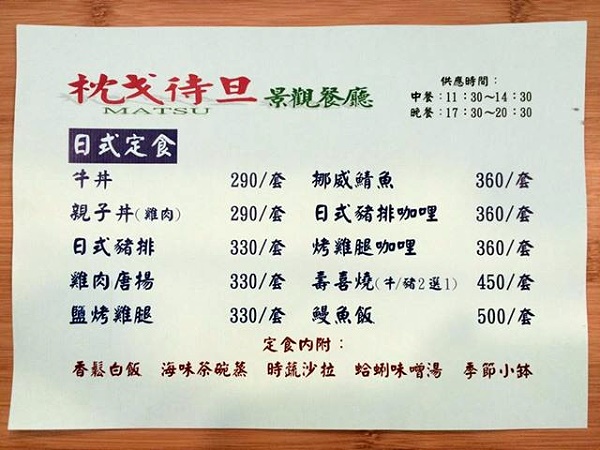 枕戈待旦 景觀餐廳
MATSU
供應時間：
中餐：11：30～14：30
晚餐：17：30～20：30
日式定食
牛丼 290/套 挪威鯖魚 360/套
親子丼(雞肉) 290/套 日式豬排咖哩 360/套
日式豬排 330/套 烤雞腿咖哩 360/套
雞肉唐揚 330/套 壽喜燒(牛/豬2選1) 450/套
鹽烤雞腿 330/套 鰻魚飯 500/套
定食內附：
香鬆白飯 海味茶碗蒸 時蔬沙拉 蛤蜊味噌湯 季節小缽